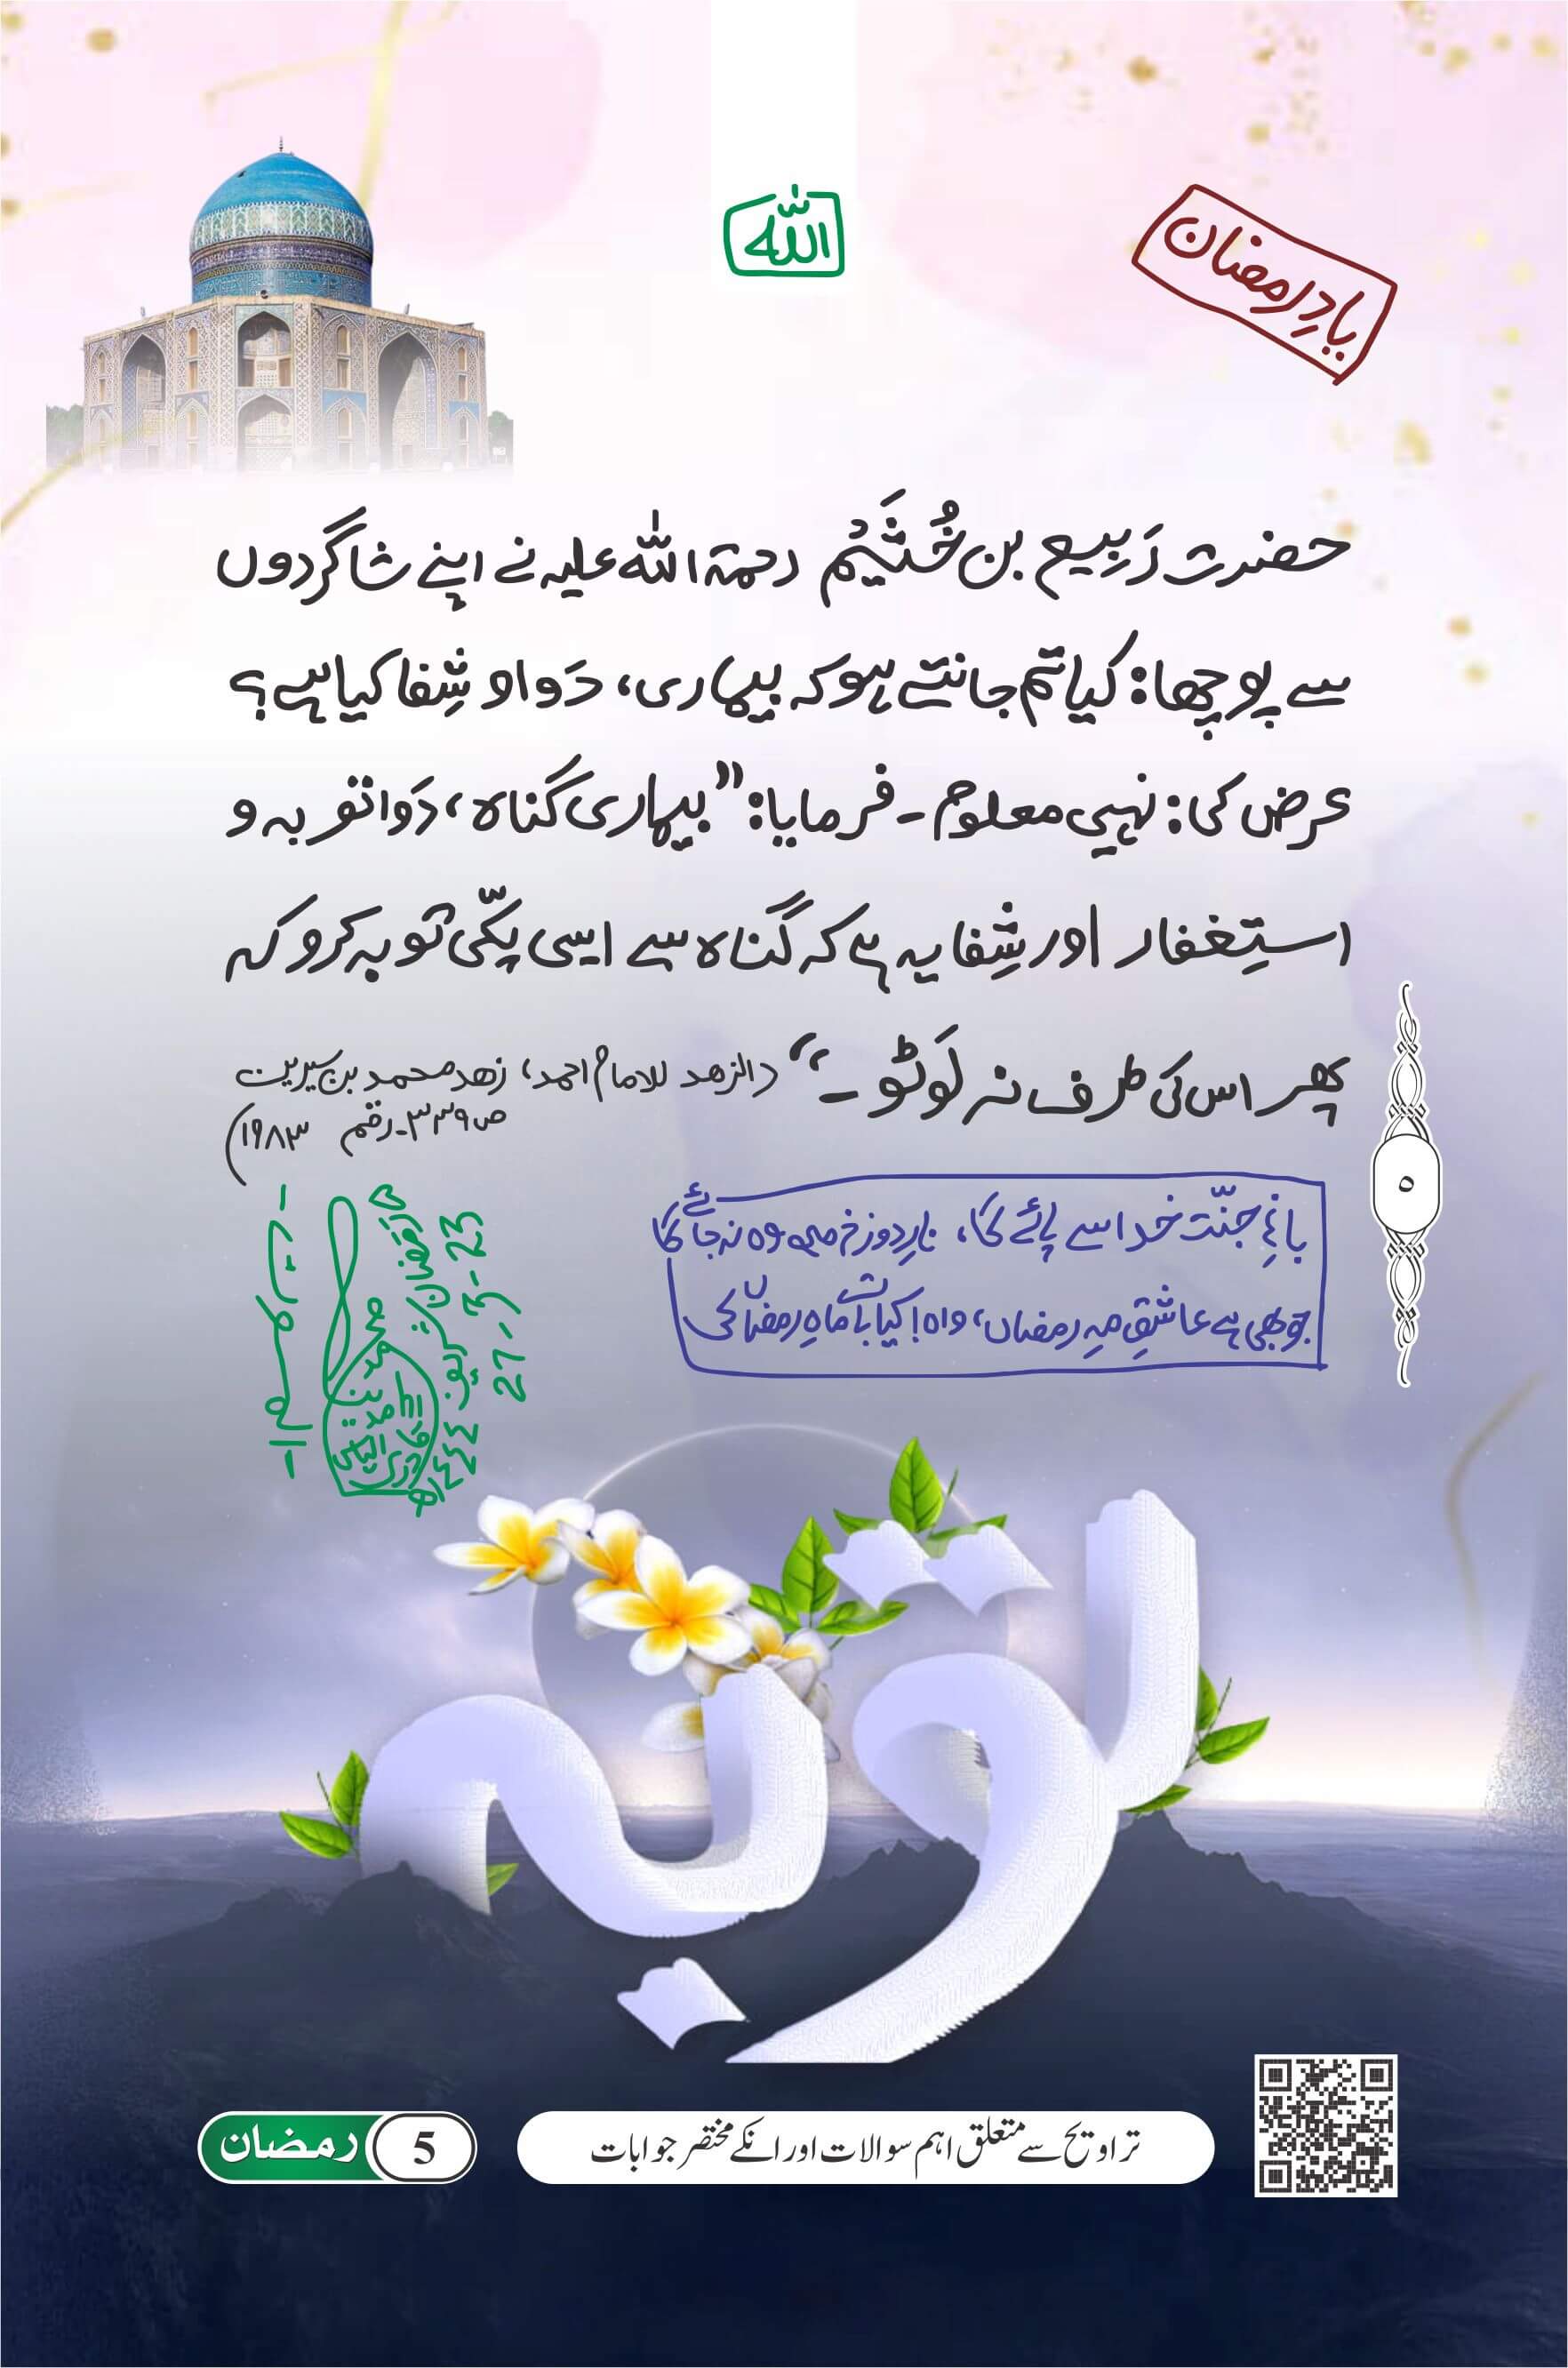 الله
یادِ رمضان
حضرت رَبِیع بن خُثَیْم رحمۃ اللہ علیہ نے اپنے شاگردوں
سے پوچھا: کیا تم جانتے ہو کہ بیماری، دَوا و شِفا کیا ہے؟
عرض کی: نہیں معلوم۔ فرمایا: ”بیماری گناہ، دَوا توبہ و
استِغفار اور شِفا یہ ہے کہ گناہ سے ایسی پکّی توبہ کرو کہ
پھر اس کی طرف نہ لَوٹو۔“ (الزھد للامام احمد، زھد محمد بن سیرین
ص ۳۳۹۔ رقم ۱۹۸۳)
۵
باغِ جنّت خدا سے پائے گا، نارِ دوزخ میں وہ نہ جائے گا
جو بھی ہے عاشقِ مہِ رمضاں، واہ! کیا بات ماہِ رمضاں کی
رمضان شریف ١٤٤٤ھ
27-3-23
توبہ
رمضان 5
تراویح سے متعلق اہم سوالات اور انکے مختصر جوابات